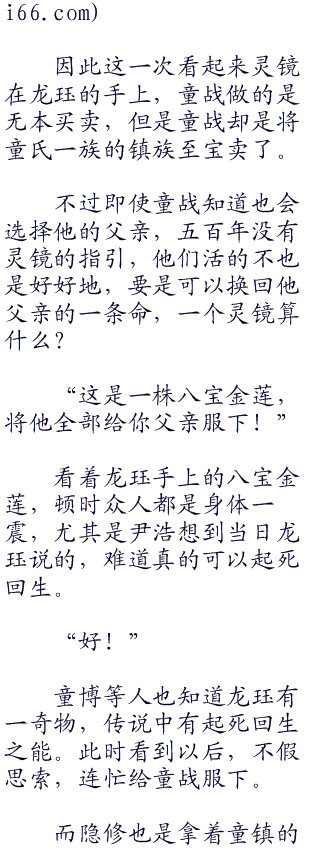 i66.com)
因此这一次看起来灵镜
在龙珏的手上，童战做的是
无本买卖，但是童战却是将
童氏一族的镇族至宝卖了。
不过即使童战知道也会
选择他的父亲，五百年没有
灵镜的指引，他们活的不也
是好好地，要是可以换回他
父亲的一条命，一个灵镜算
什么？
“这是一株八宝金莲，
将他全部给你父亲服下！”
看着龙珏手上的八宝金
莲，顿时众人都是身体一
震，尤其是尹浩想到当日龙
珏说的，难道真的可以起死
回生。
“好！”
童博等人也知道龙珏有
一奇物，传说中有起死回生
之能。此时看到以后，不假
思索，连忙给童战服下。
而隐修也是拿着童镇的